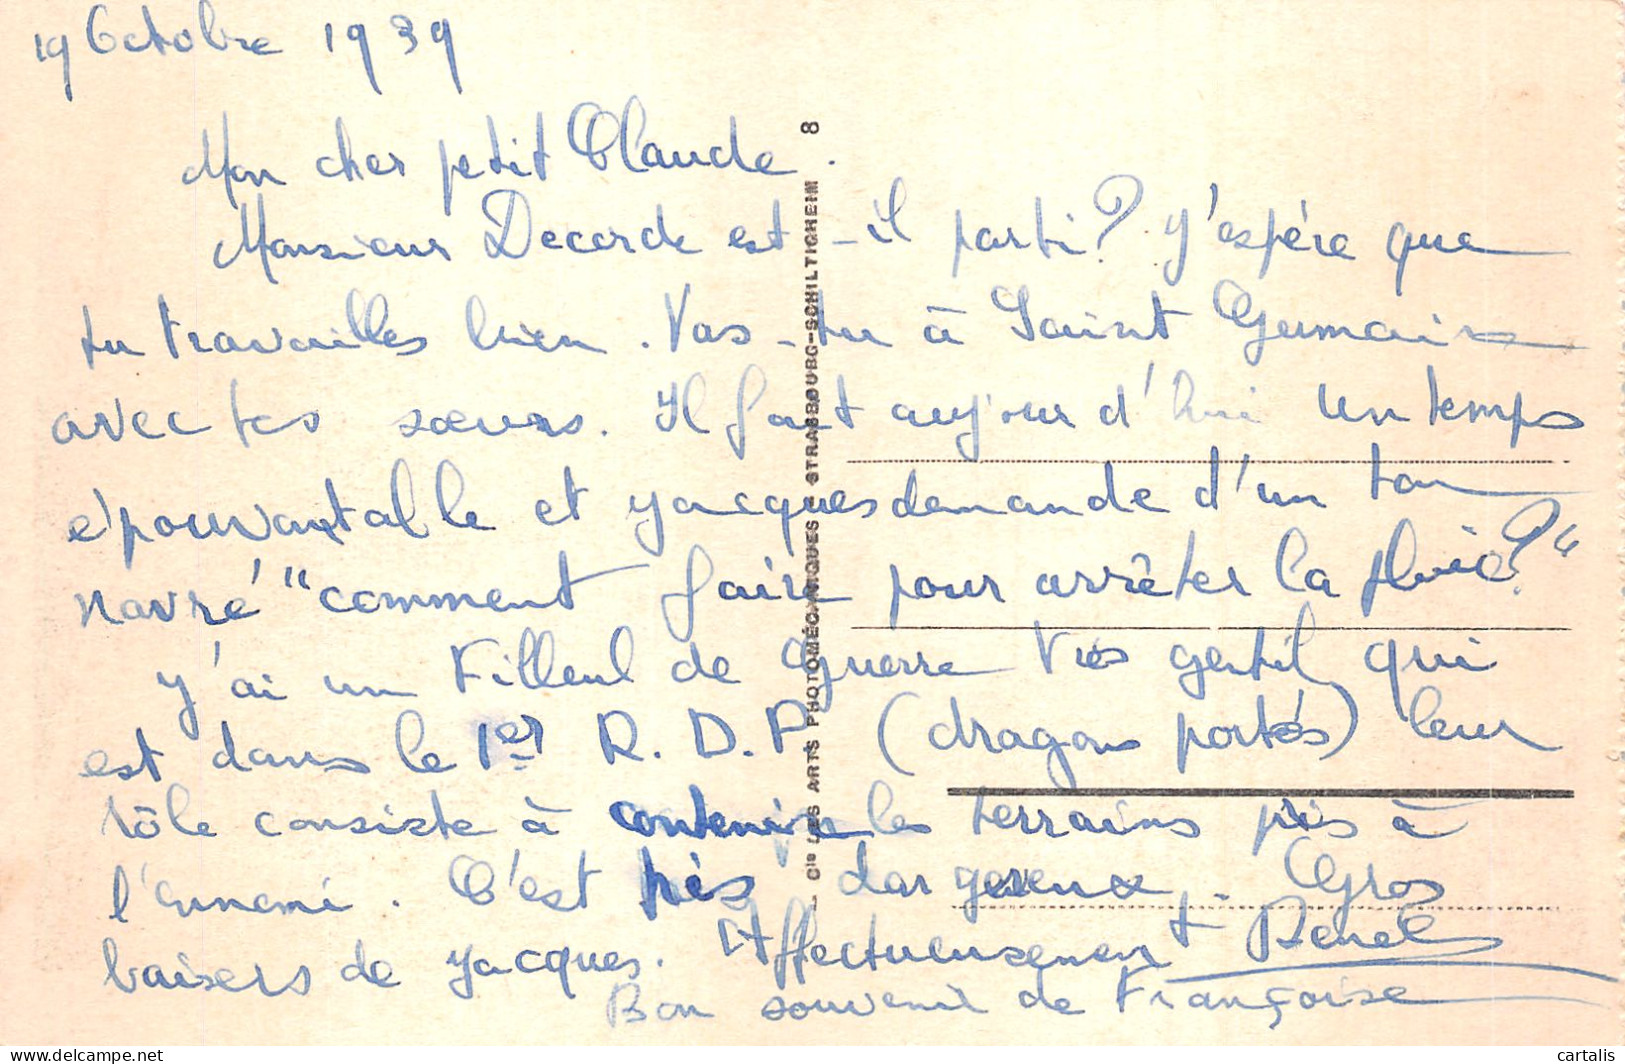 19 Octobre 1939
Mon cher petit Claude.
Monsieur Decorde est-il parti? J'espére que
tu travailles bien. Vas-tu à Saint Germain
avec tes sœurs. Il fait aujourd'hui un temps
épouvantable et Jacques demande d'un ton
navré "comment faire pour arrêter la pluie?"
J'ai un Filleul de Guerre très gentil qui
est dans le 1er R.D.P (dragons portés) leur
rôle consiste à contenir les terrains pris à
l'ennemi. C'est très dangereux. Gros
baisers de Jacques. Affectueusement
Bon souvenir de Françoise
Cie LES ARTS PHOTOMÉCANIQUES - STRASBOURG-SCHILTIGHEIM 8
cartalis